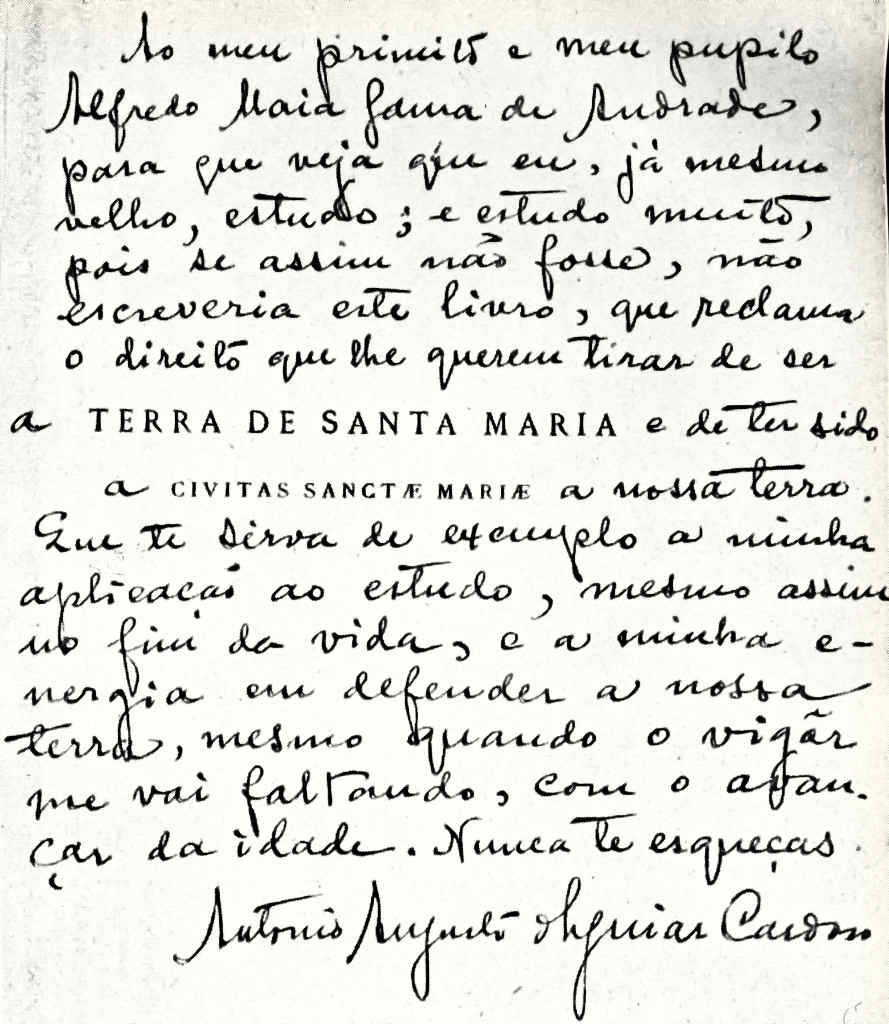 Ao meu primitõ e meu pupilo
Alfredo Maia Gama de Andrade,
para que veja que eu, já mesmo
velho, estudo; e estudo muito,
pois se assim não fosse, não
escreveria este livro, que reclama
o direito que lhe querem tirar de ser
a TERRA DE SANTA MARIA e de ter sido
a CIVITAS SANCTÆ MARIÆ a nossa terra.
Que te sirva de exemplo a minha
aplicação ao estudo, mesmo assim
no fim da vida, e a minha e-
nergia em defender a nossa
terra, mesmo quando o vigôr
me vai faltando, com o avan-
çar da idade. Nunca te esqueças.
Antonio Augusto d'Aguiar Cardoso